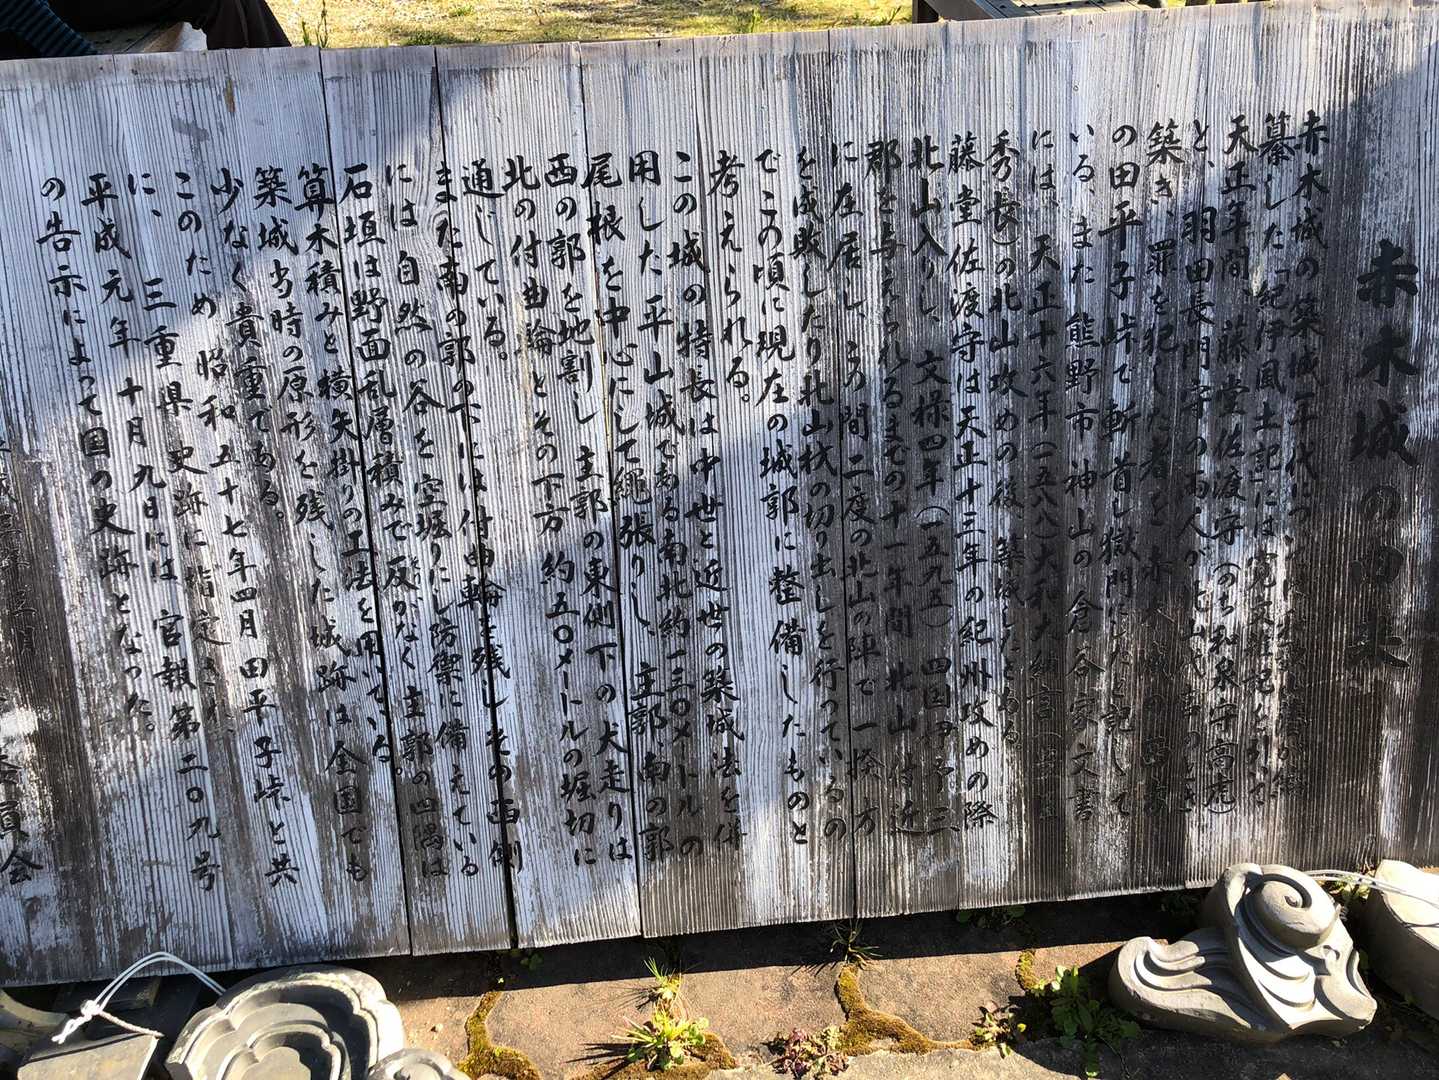 赤木城の由来
赤木城の築城年代につ
纂した「紀伊風土記」には寛文雑記を引いて
天正年間、藤堂佐渡守(のち和泉守高虎)
と、羽田長門守の両人が
築き、罪を犯した者を赤木城の西方
の田平子峠で斬首し獄門にしたと記して
いる、また熊野市神山の倉谷家文書
には、天正十六年(一五八八)大和大納言
秀長)の北山攻めの後、築城したとある
藤堂佐渡守は天正十三年の紀州攻めの際
北山入りし、文禄四年(一五九五)四国伊予三
郡を与えられるまでの十一年間北山付近
に在居し、この間二度の北山の陣で一揆方
を成敗したり北山材の切り出しを行っているの
でこの頃に現在の城郭に整備したものと
考えられる。
この城の特長は中世と近世の築城法を併
用した平山城である南北約一三〇メートルの
尾根を中心にして縄張りし、主郭、南の郭
西の郭を地割し主郭の東側下の犬走りは
北の付曲輪とその下方約五〇メートルの堀切に
通じている。
また南の郭の下には付曲輪を残しその西側
には自然の谷を空堀りにし防禦に備えている
石垣は野面乱層積みで反がなく主郭の四隅は
算木積みと横矢掛りの工法を用いている。
築城当時の原形を残した城跡は全国でも
少なく貴重である。
このため昭和五十七年四月田平子峠と共
に、三重県史跡に指定され、
平成元年十月九日には官報第二〇九号
の告示によって国の史跡となった。
員会